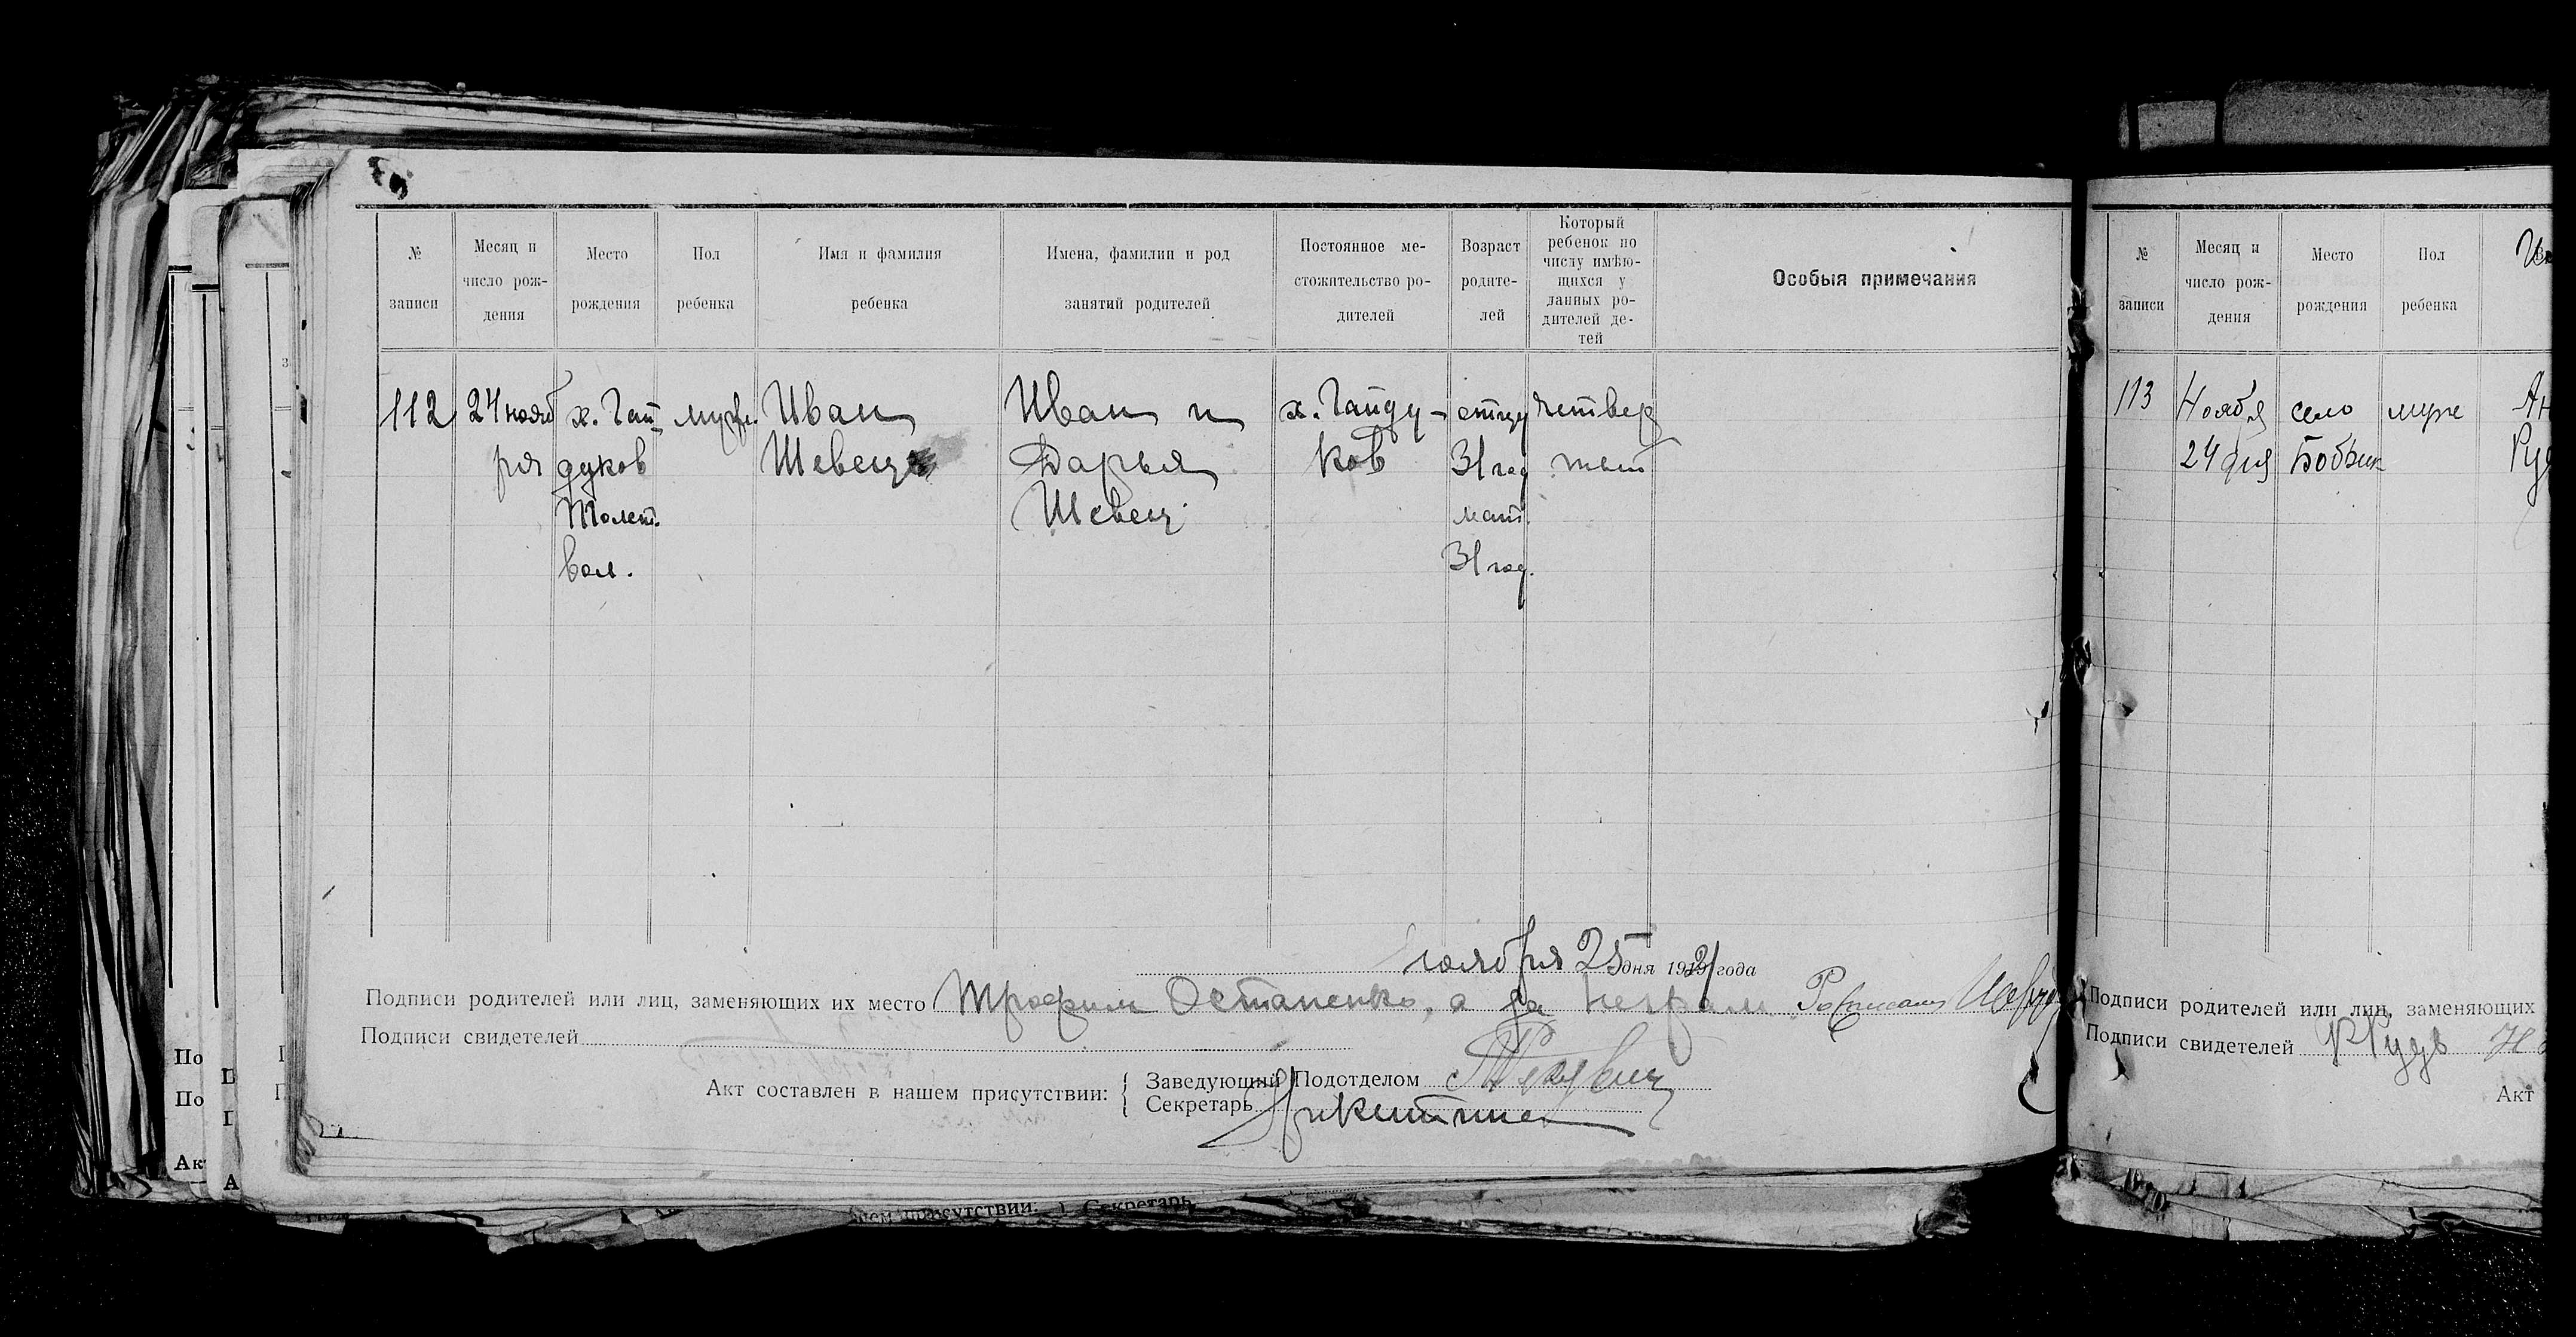 № записи
Месяц и число рож-дения
Место рождения
Пол ребенка
Имя и фамилия ребенка
Имена, фамилии и род занятий родителей
Постоянное ме-стожительство ро-дителей
Возраст родите-лей
Который ребенок по числу имѣю-щихся у данных ро-дителей де-тей
Особыя примечания
112
24 нояб
ря
х. Гай
дуков
Толст.
вол.
муж.
Иван
Шевец
Иван и
Дарья
Шевец
х. Гайду-
ков
отцу
31 год
мат.
31 год.
четвер
тый
ноября 25 дня 1921 года
Подписи родителей или лиц, заменяющих их место Трофим Остапенко, а за неграм.
Подписи свидетелей
Акт составлен в нашем присутствии: { Заведующий Подотделом
Секретарь Никитин
№ записи
Месяц и число рож-дения
Место рождения
Пол ребенка
113
Ноября
24 дня
село
Бобрик
муж
Ан
Руд
Подписи родителей или лиц, заменяющих
Подписи свидетелей
Акт
По
По
Ак
нем присутствии: } Секретарь